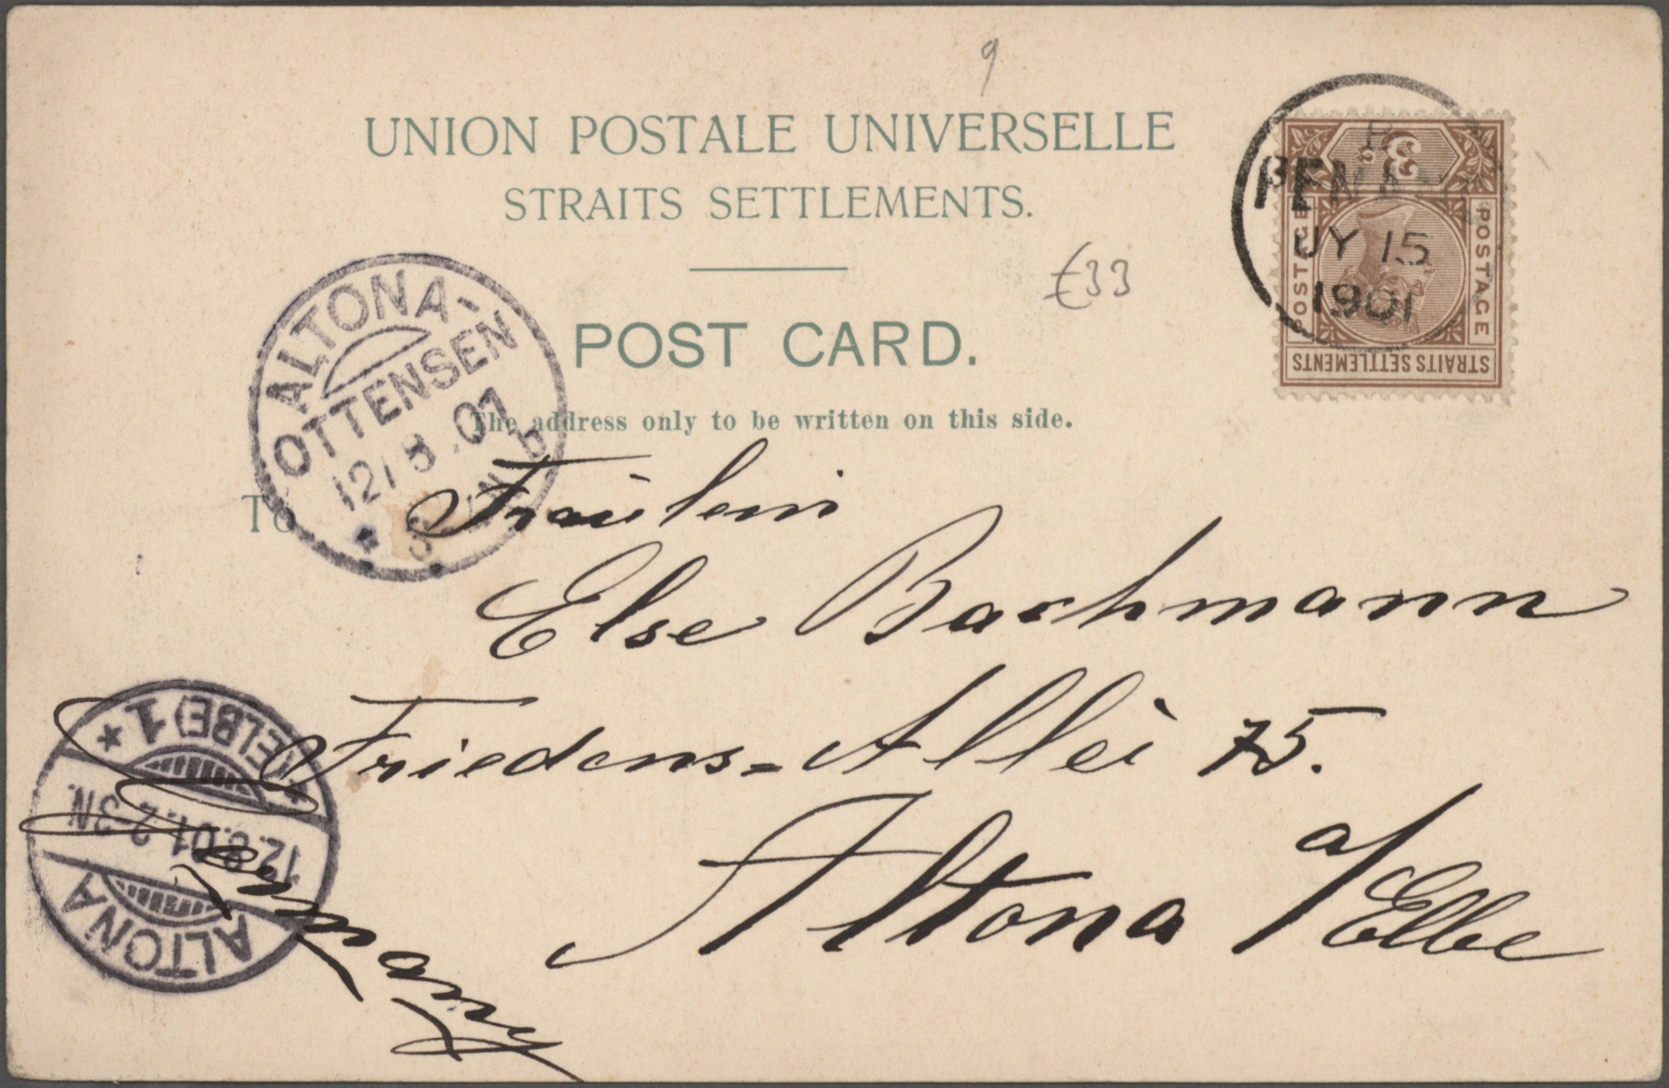 9
UNION POSTALE UNIVERSELLE
STRAITS SETTLEMENTS.
POST CARD.
The address only to be written on this side.
£33
3c
POSTAGE
POSTAGE
STRAITS SETTLEMENTS
PENANG
JY 15
1901
ALTONA-
OTTENSEN
12/8.01
b
To
Fräulein
Else Bachmann
Friedens-Allei 75.
Altona a/Elbe
Germany
ALTONA
12.8.01.2-3N.
(ELBE) 1